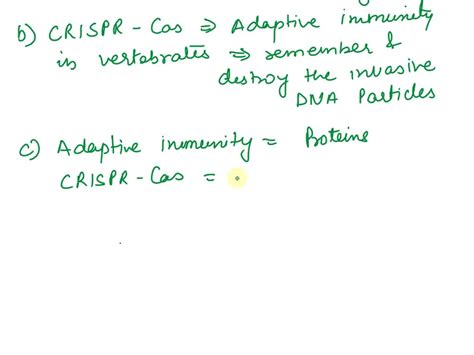 b) CRISPR - Cas ⇒ Adaptive immunity
in vertebrates ⇒ remember &
destroy the invasive
DNA Particles
c) Adaptive immunity = Proteins
CRISPR - Cas =